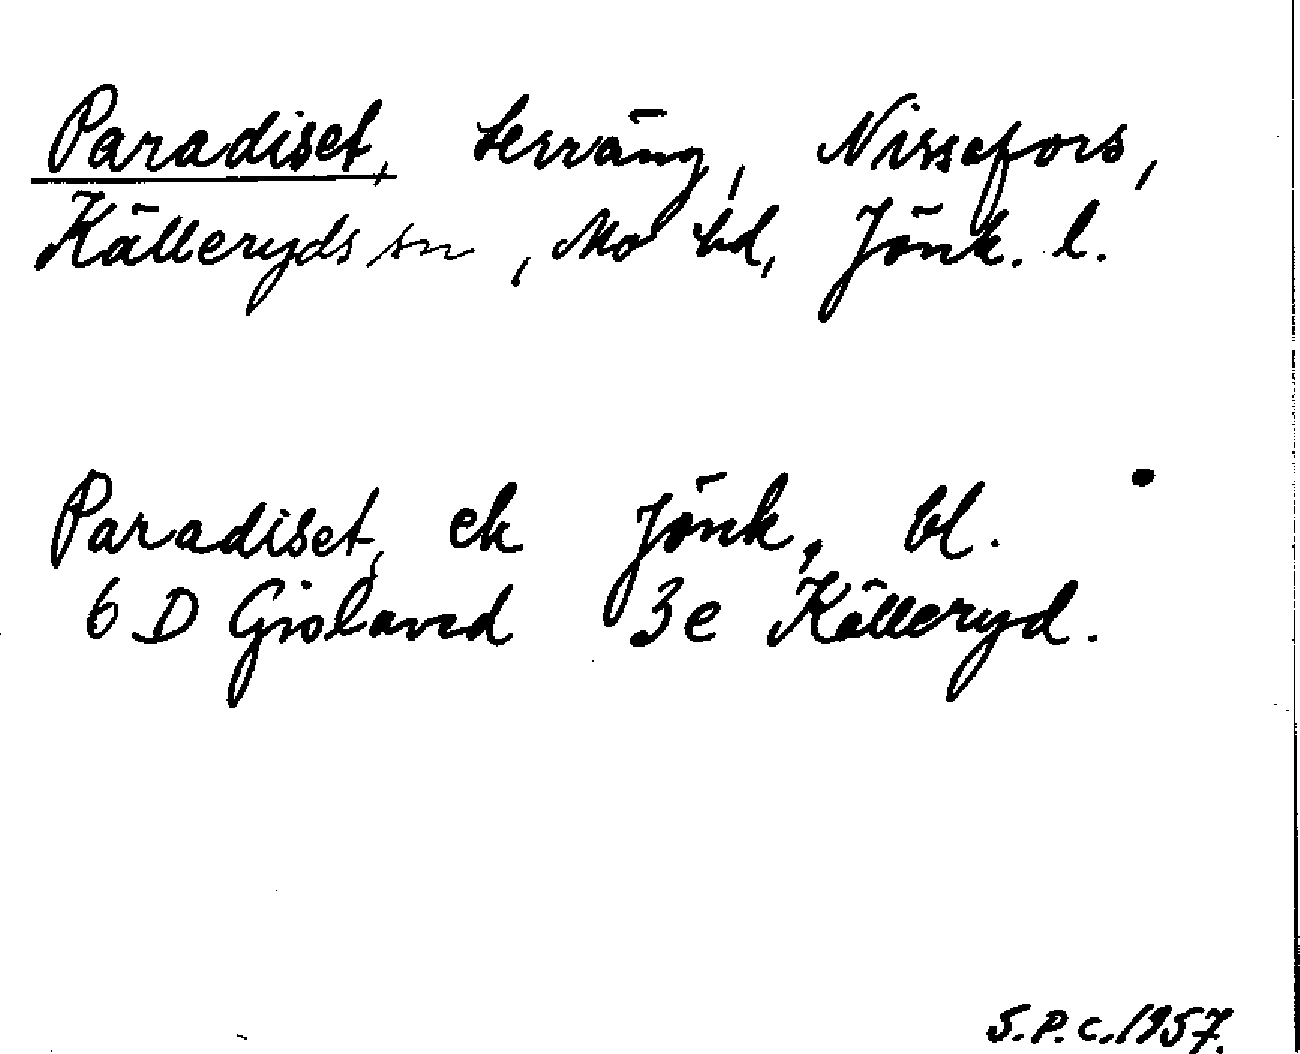 Paradiset, terräng, Nissafors,
Källeryds sn, Mo hd, Jönk. l.
Paradiset, ek Jönk. bl.
6 D Gislaved 3e Källeryd.
S.P.C. 1957.